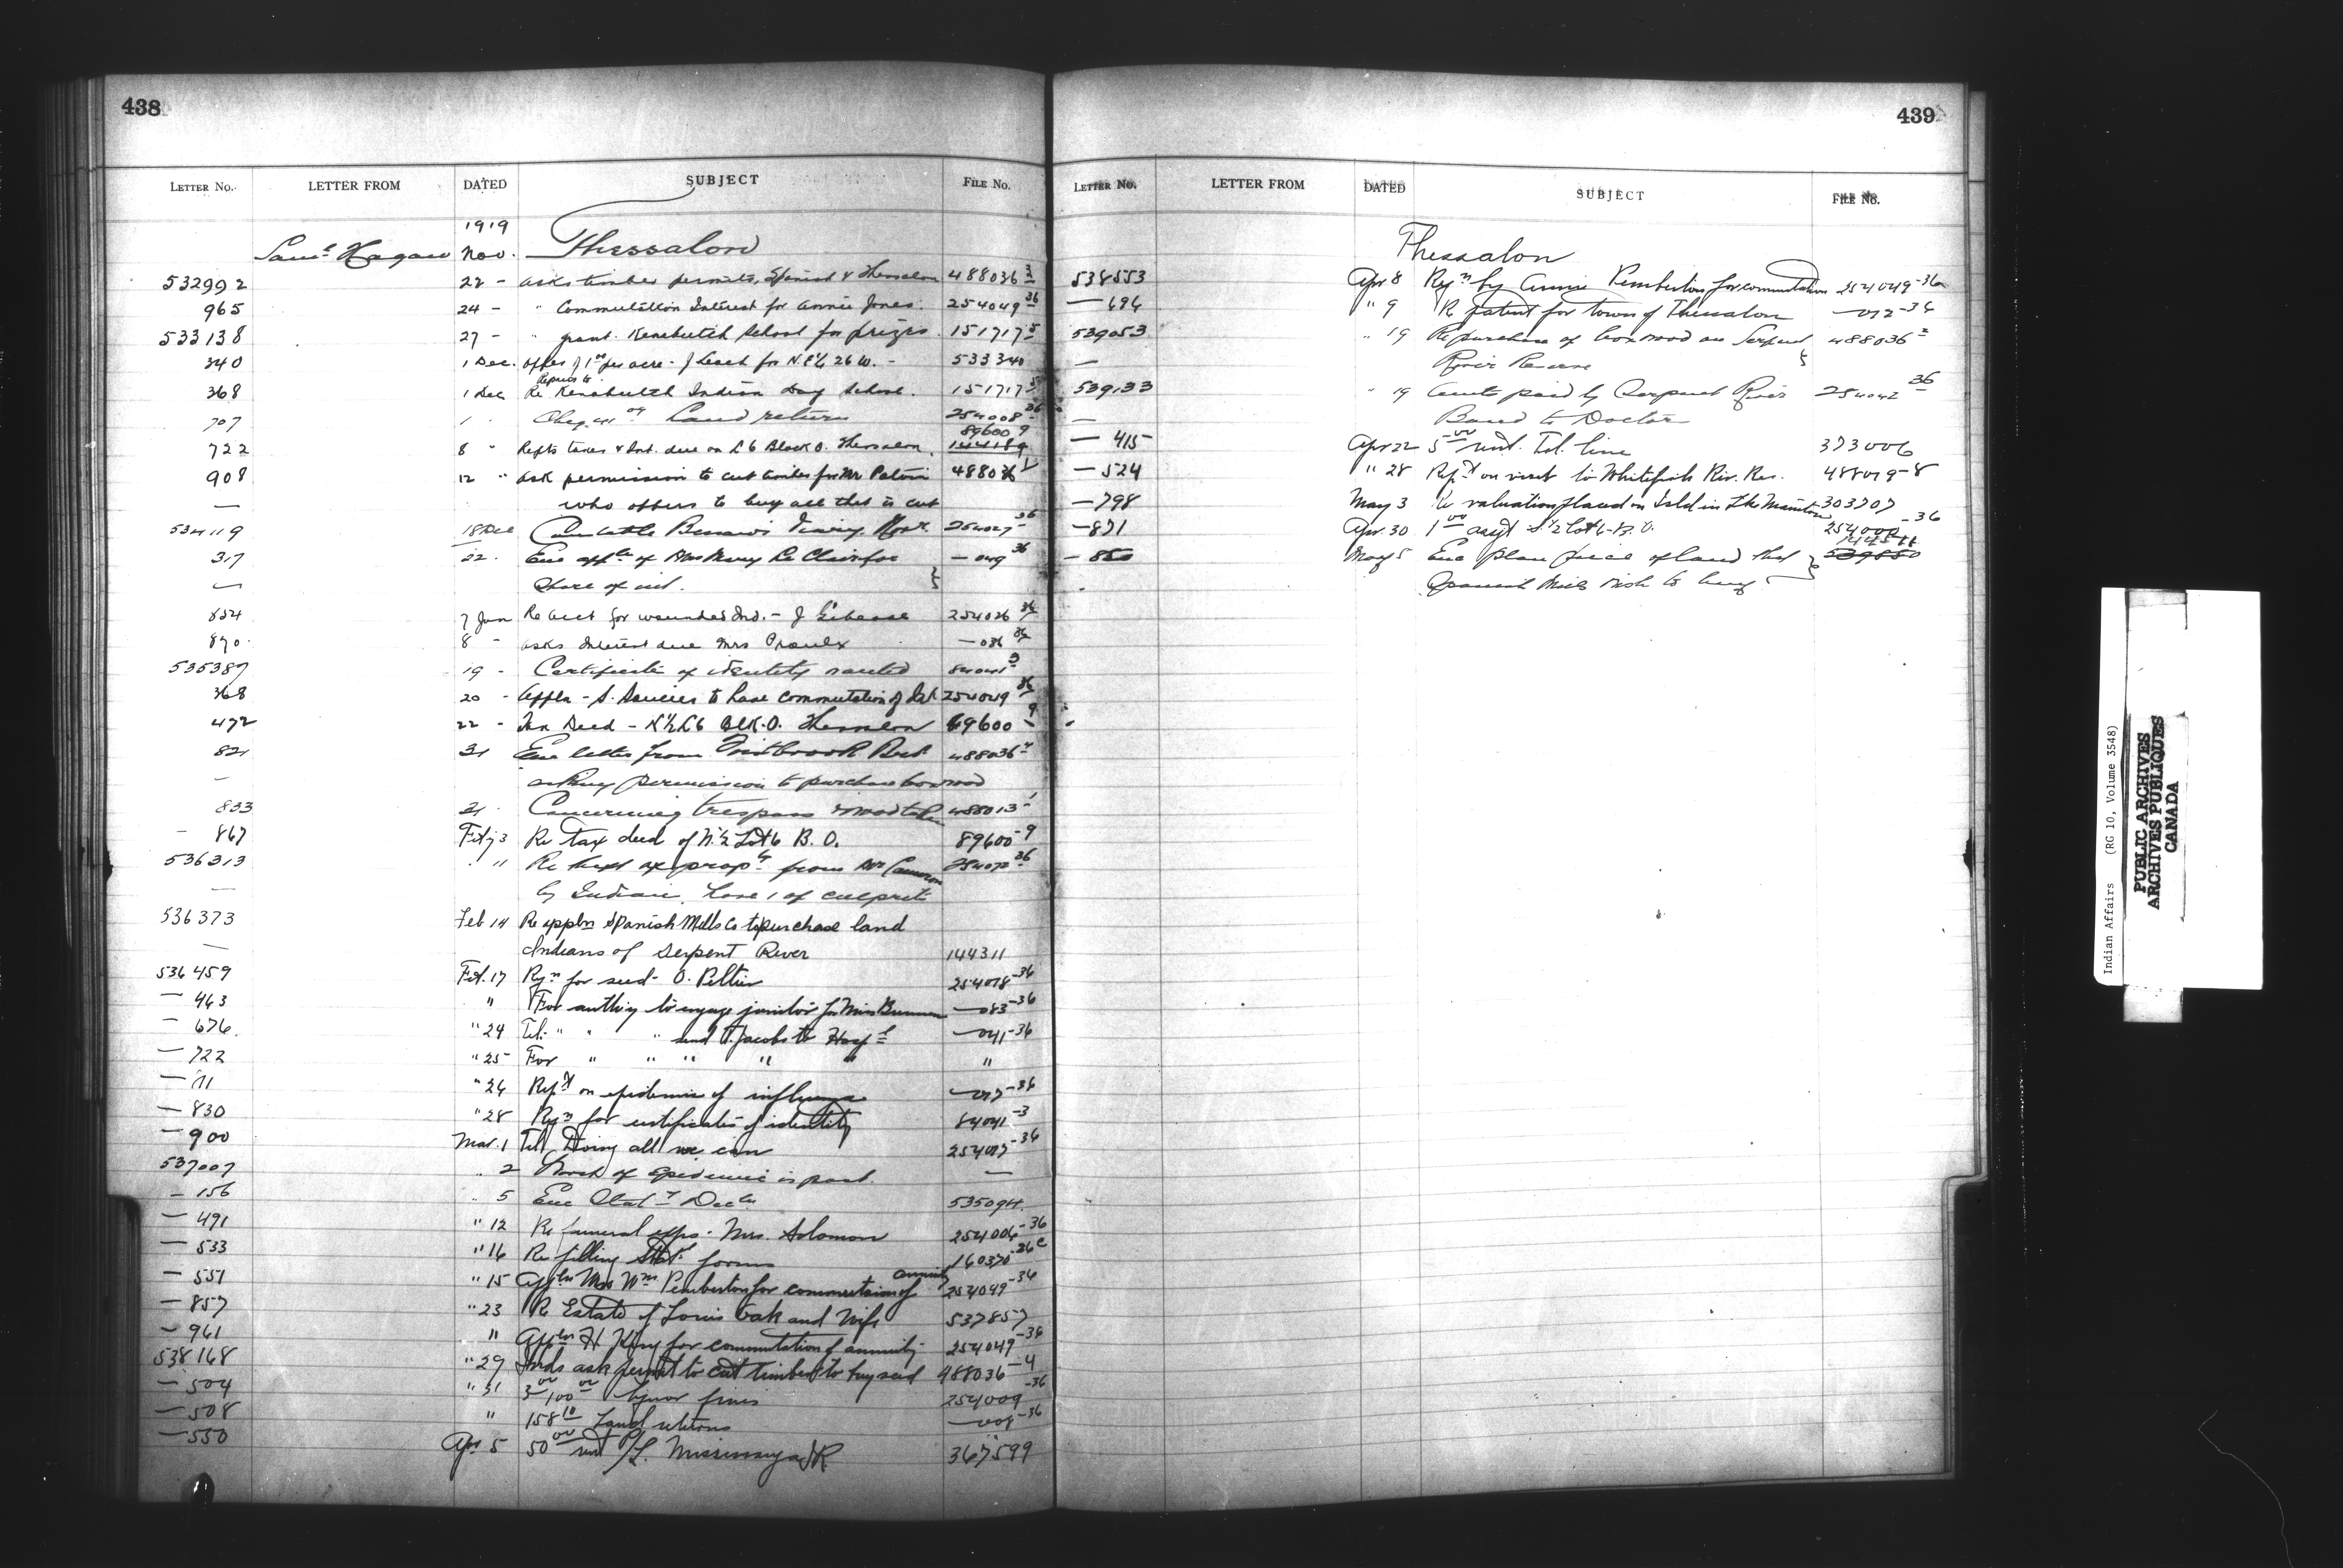 438
LETTER No. LETTER FROM DATED SUBJECT FILE No.
1919
Saml Hagan Nov. Thessalon
532992 22 - asks timber permits, Spanish & Thessalon 488036-3
965 24 - " Commutation Interest for Annie Jones. 254049-36
533138 27 - " grant. Kenabutch School for prizes. 151717-5
340 1 Dec. offer of 1 per acre - J Leach for 26 W. - 533340
368 1 Dec Re Repairs to Kenabutch Indian Day School. 151717-5
707 1 . Land return 254008-36
89600-9
722 8 " Refts taxes & Int. due on L 6 Block O. Thessalon. 144189
908 12 " Ask permission to cut timber for Mr 488036
— who offers to buy all that is cut
534119 18 Dec 254027-36
317 22. Enc appln of Mrs Mary Le Clair for — 049-36
— Share of int.
654 7 Jan Re acct for wounded Ind. - J 254026-36
890. 8 - asks Interest due Mrs Proulx — 036-36
535387 19 - Certificate of identity wanted 84041-3
368 20 - Appln - S. to have commutation of Int 254049-36
472 22 - Tax Deed - N½ L6 BLK. O. Thessalon 89600-9
821 31 Enc letter from 488036-4
— asking permission to purchase boxwood
833 31. Concerning trespass 488013-1
— 867 Feby 3 Re tax deed of N.½ Lot 6 B. O. 89600-9
536313 " Re theft of propty from Mr Cameron 254072-36
— by Indian, have 1 of culprits
536373 Feb 14 Re appln Spanish Mills Co to purchase land
— Indians of Serpent River 144311
536459 Feb. 17 Rqn for seed - O. Peltier 254078-36
— 463 " For authy to engage janitor for Miss — 083-36
— 676. " 24 Tel. " " " send T. Jacobs to Hospl — 041-36
— 722 " 25 For " " " " " "
— 711 " 26 Rept on epidemic of influenza — 017-36
— 830 " 28 Rqn for certificates of identity 84041-3
— 900 Mar. 1 Tel. Doing all we can 254017-36
537007 " 2 Worst of epidemic is past. —
— 156 " 5 Enc Statr Decln 535094.
— 491 " 12 Re funeral exps. Mrs. Solomon 254006-36
— 533 " 16 Re filling Statl forms 160370-36c
— 551 " 15 Appln Mrs Wm Pemberton for commutation of annuity 254049-36
— 857 " 23 Re Estate of Louis Oak and Wife 537857
— 961 " Appln H King for commutation of annuity 254049-36
538168 " 29 Inds ask permit to cut timber to buy seed 488036-4
— 504 " 31 liquor fines 254009-36
— 508 " 158 10 Land returns — 008-36
— 550 Apr 5 50 00 rent P/L. Mississauga IR 367599
439
LETTER No. LETTER FROM DATED SUBJECT FILE No.
Thessalon
538553 Apr 8 Rqn by Annie Pemberton for commutation 254049-36
— 696 " 9 Re patent for town of Thessalon — 072-36
539053 " 19 Re purchase of boxwood on Serpent 488036-3
— River Reserve
539133 " 19 Amts paid by Serpent River 254042-36
— Band to Doctor
— 415 Apr 22 5 00 rent. Tel. line 373006
— 524 " 28 Rept on visit to Whitefish Riv. Res. 488019-8
— 798 May 3 Re valuation placed on Isld in Lke Manitou 303707
— 871 Apr. 30 1 00 asgt S.½ Lot 6-B.O. 254002-36
144311
— 850 May 5 Enc plan piece of land that 539850
Spanish Mills wish to buy
Indian Affairs (RG 10, Volume 3548)
PUBLIC ARCHIVES
ARCHIVES PUBLIQUES
CANADA